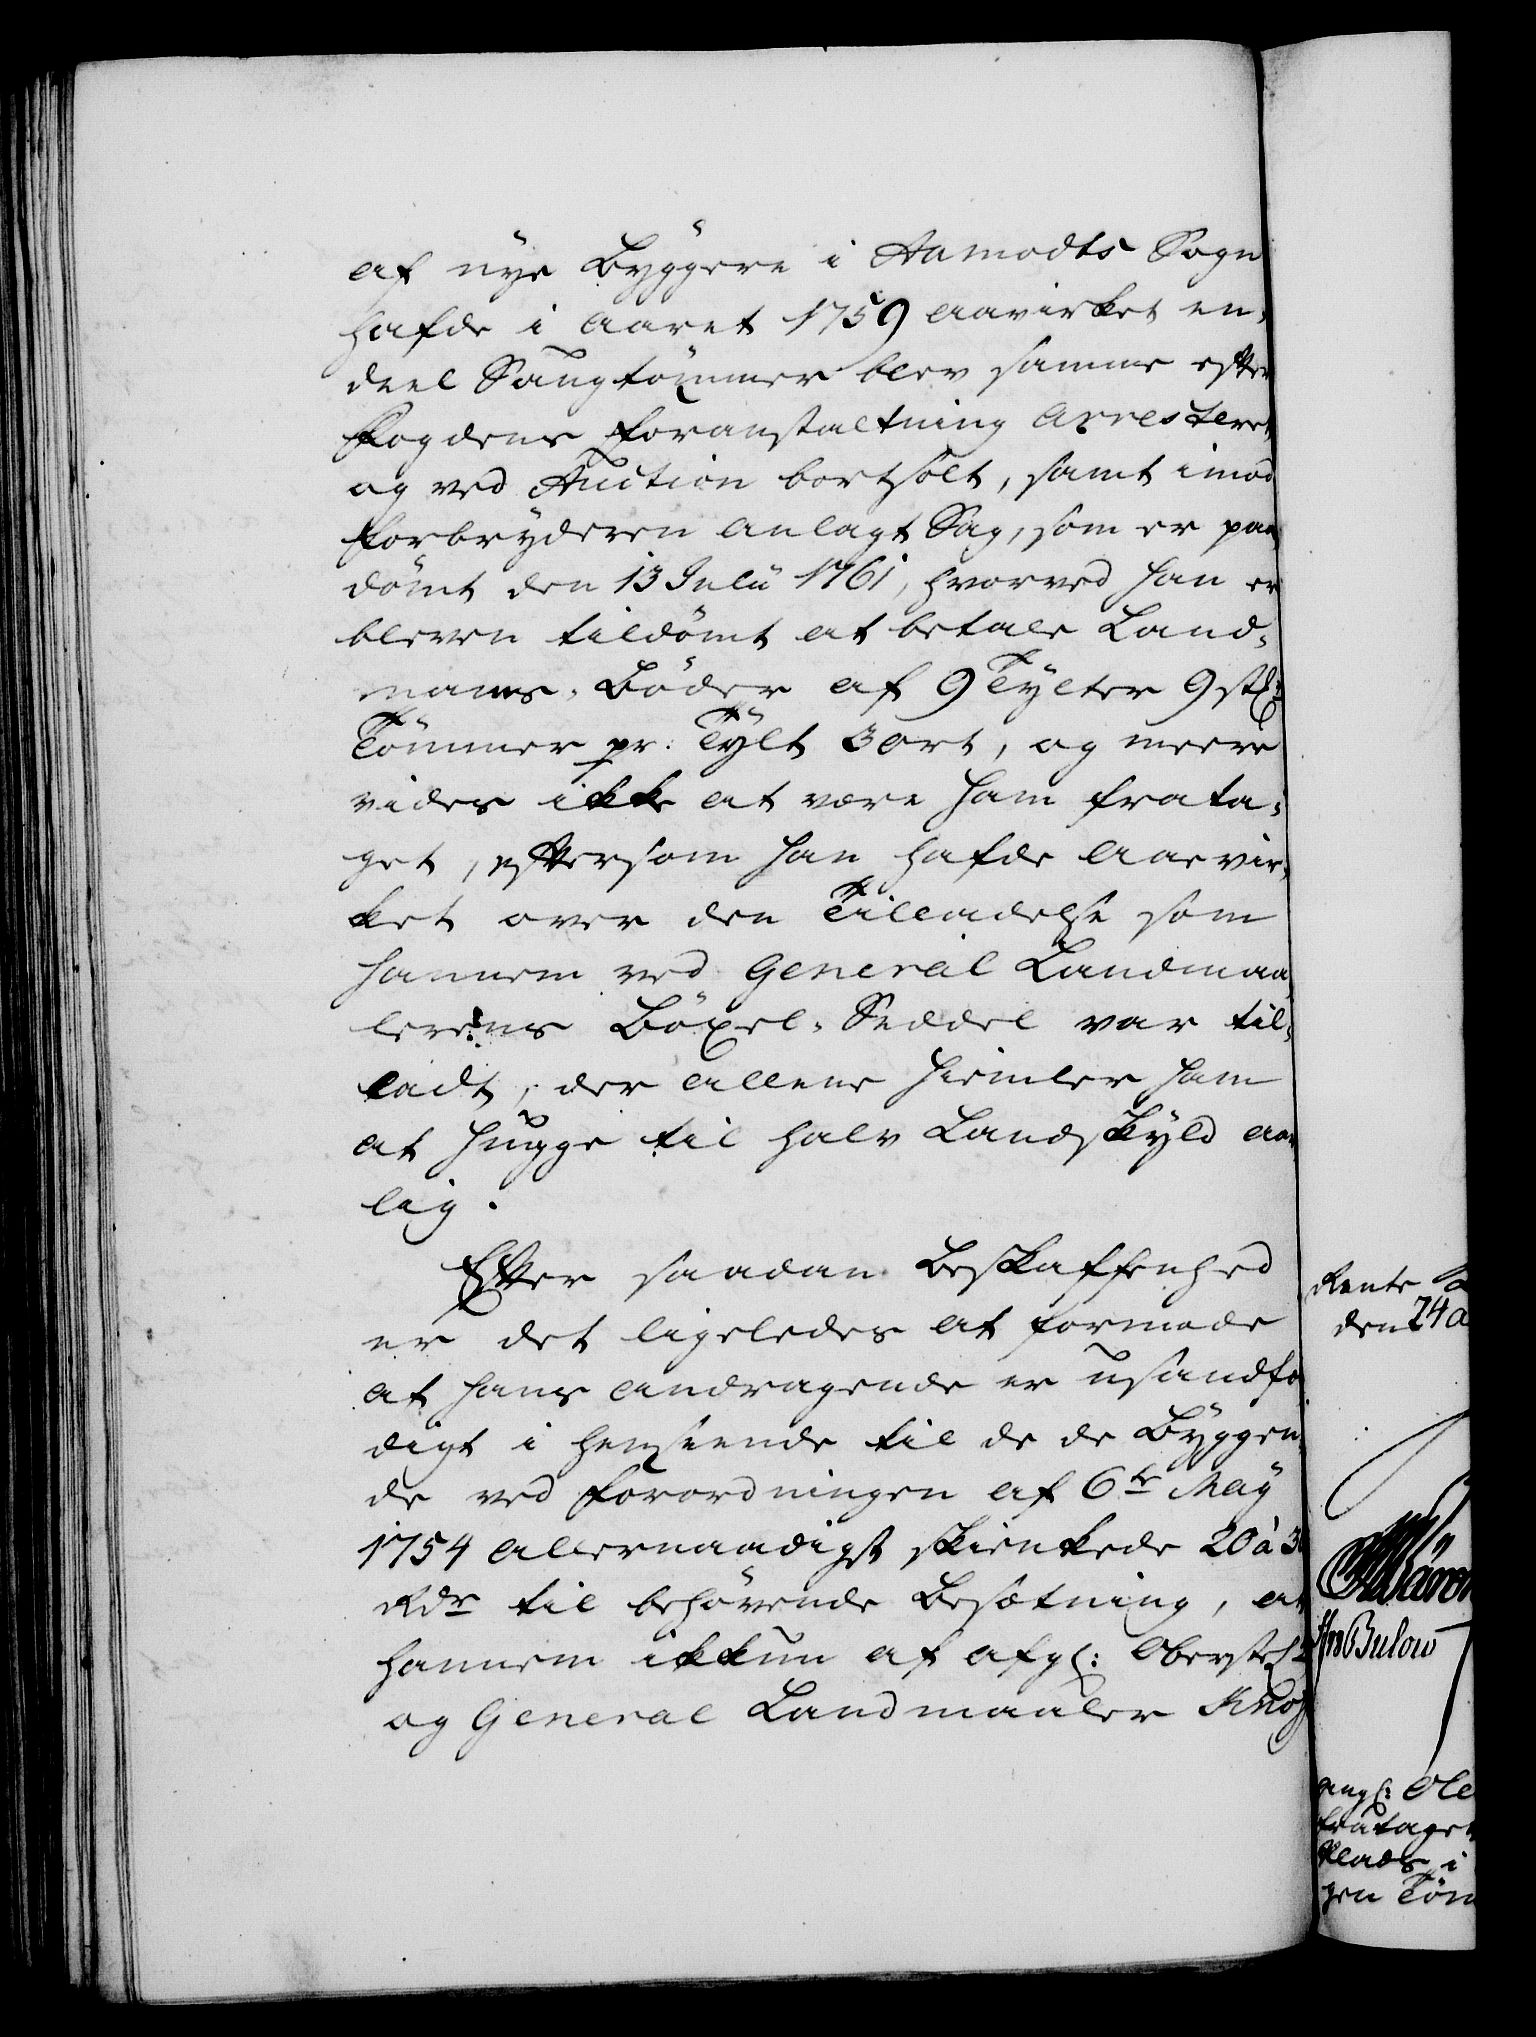 af nye Byggere i Aamodts Sogn
hafde i Aaret 1759 aavirket en-
deel Saugtömmer blev samme efter
Fogdens Foranstaltning Arresteret
og ved Auction bortsolt, samt imod
Forbryderen anlagt Sag, som er paa-
dömt den 13 Julii 1761, hvorved han er
bleven tildömt at betale Land-
mands-Böder af 9 Tylter 9 stk:
Tömmer pr: Tylt 3 ort, og meere
vides ikke at være ham frata-
get, eftersom han hafde aavir-
ket over den Tilladelse som
hannem ved General Landmaa-
lerens Böxel-Seddel var til-
ladt, der allene hiemler ham
at hugge til halv Landskyld aar-
lig.
Efter saadan Beskaffenhed
er det ligeledes at formode
at hans andragende er usandfær-
digt i henseende til de de Byggen-
de ved Forordningen af 6te May
1754 allernaadigst skienkede 20 à 30
Rdr til behövende Besætning, at
hannem ikkun af afg: Oberste
og General Landmaaler Knof
Rente
den 24 a
Bulow
ang: Ole
frataget
Plads i
gen Töm